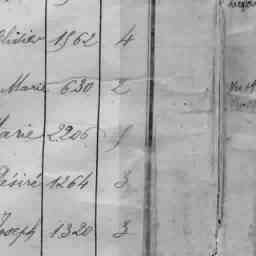 Olivier 1562 4
Marie 630 2
Marie 2206 1
Désiré 1264 3
Joseph 1320 3